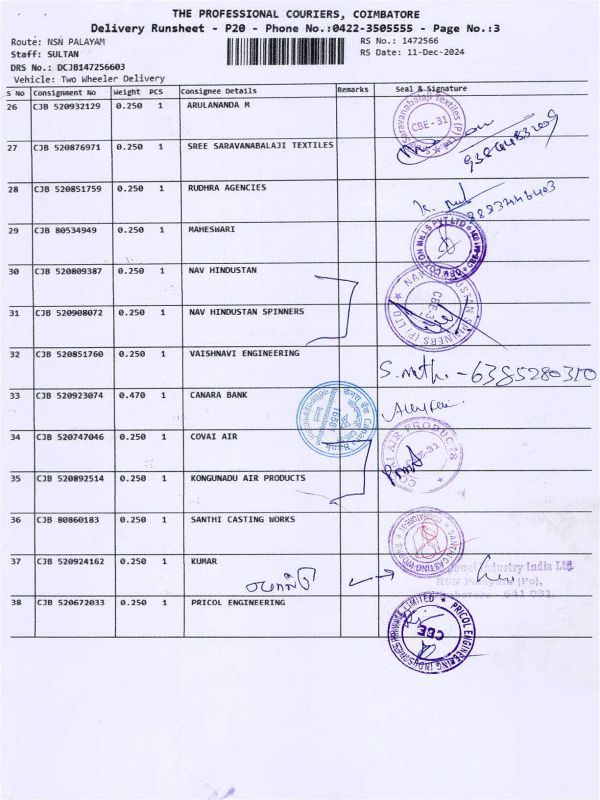 THE PROFESSIONAL COURIERS, COIMBATORE
Delivery Runsheet - P20 - Phone No.:0422-3505555 - Page No.:3
Route: NSN PALAYAM RS No.: 1472566
Staff: SULTAN RS Date: 11-Dec-2024
DRS No.: DCJB147256603
Vehicle: Two Wheeler Delivery
S No Consignment No Weight PCS Consignee Details Remarks Seal & Signature
26 CJB 520932129 0.250 1 ARULANANDA M
CBE-31
27 CJB 520876971 0.250 1 SREE SARAVANABALAJI TEXTILES
28 CJB 520851759 0.250 1 RUDHRA AGENCIES
29 CJB 80534949 0.250 1 MAHESWARI
30 CJB 520809387 0.250 1 NAV HINDUSTAN
31 CJB 520908072 0.250 1 NAV HINDUSTAN SPINNERS
32 CJB 520851760 0.250 1 VAISHNAVI ENGINEERING
6385280310
33 CJB 520923074 0.470 1 CANARA BANK
34 CJB 520747046 0.250 1 COVAI AIR
35 CJB 520892514 0.250 1 KONGUNADU AIR PRODUCTS
36 CJB 80860183 0.250 1 SANTHI CASTING WORKS
SANTHI CASTING WORKS
37 CJB 520924162 0.250 1 KUMAR
Industry India Ltd
NSN Palayam (Po),
641 031.
38 CJB 520672033 0.250 1 PRICOL ENGINEERING
PRICOL ENGINEERING INDUSTRIES PRIVATE LIMITED
CBE